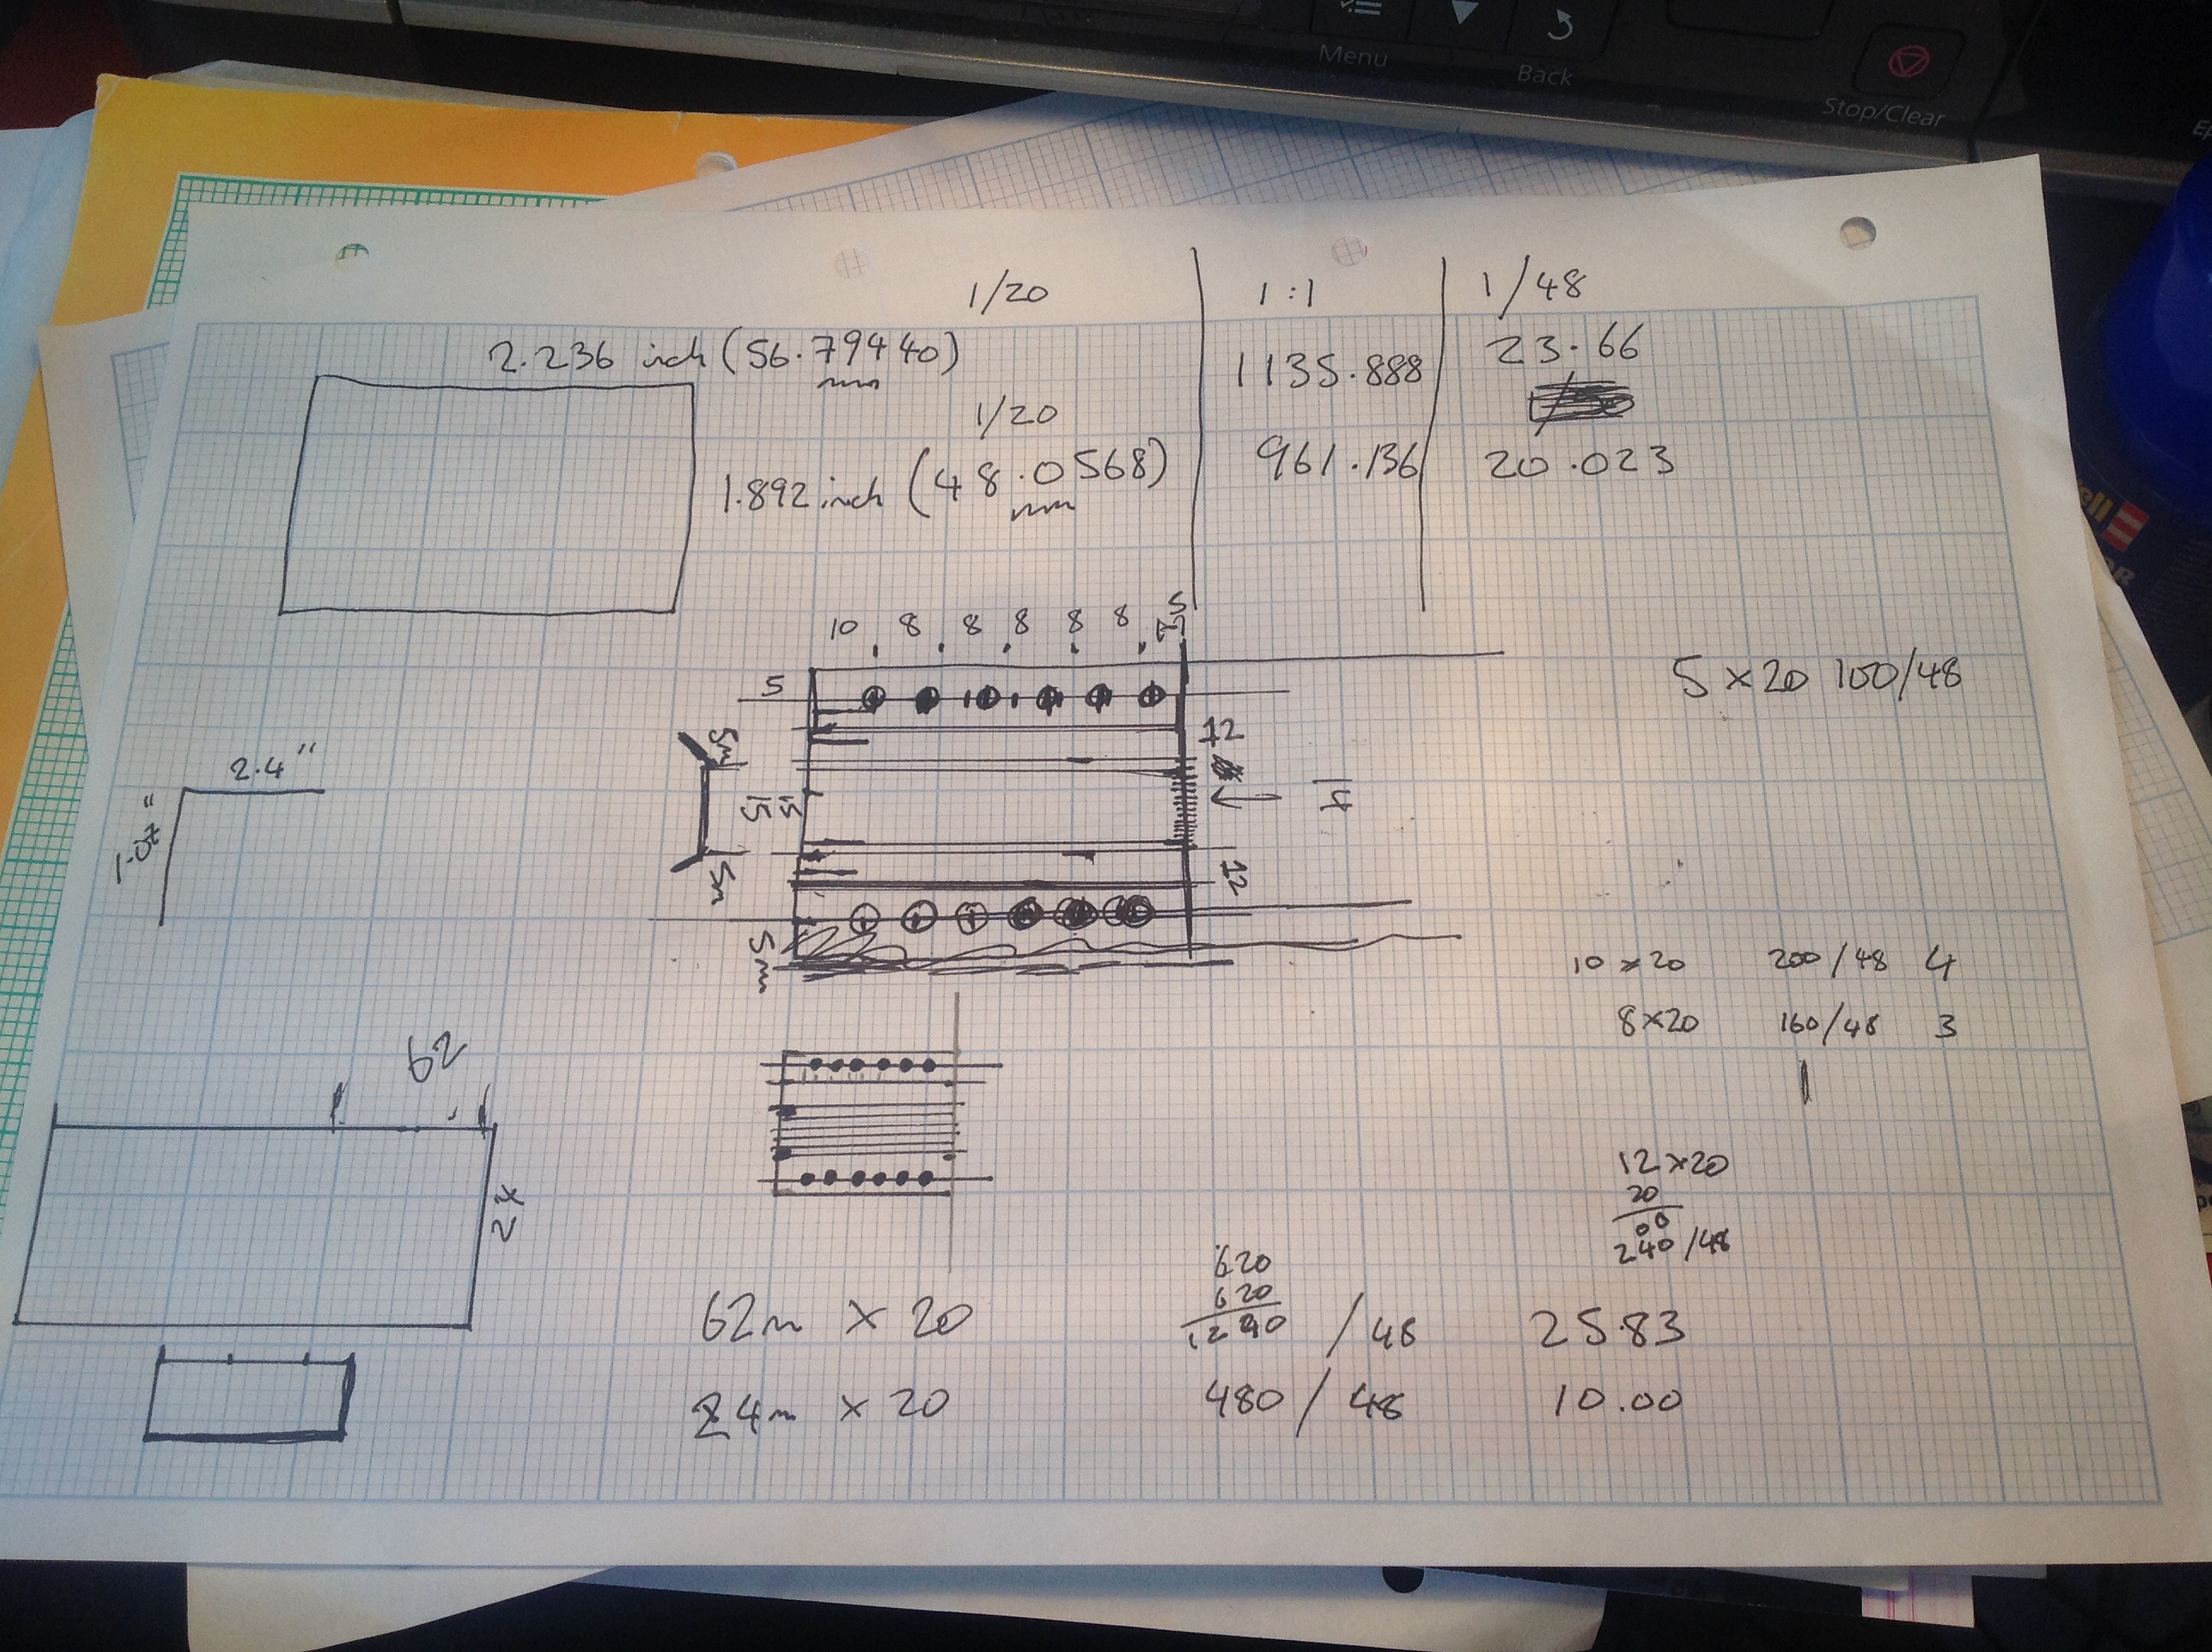 Menu
Back
Stop/Clear
1/20 1:1 1/48
2.236 inch (56.79440) 1135.888 23.66
mm
1/20
1.892 inch (48.0568) 961.136 20.023
mm
10 8 8 8 8 8 5
5
5 x 20 100/48
5m
12
2.4"
1.07"
15 15 14
5m
12
5m
10 x 20 200/48 4
8 x 20 160/48 3
62
24
12 x 20
20
00
240/48
620
620
62m x 20 1240 / 48 25.83
24m x 20 480 / 48 10.00